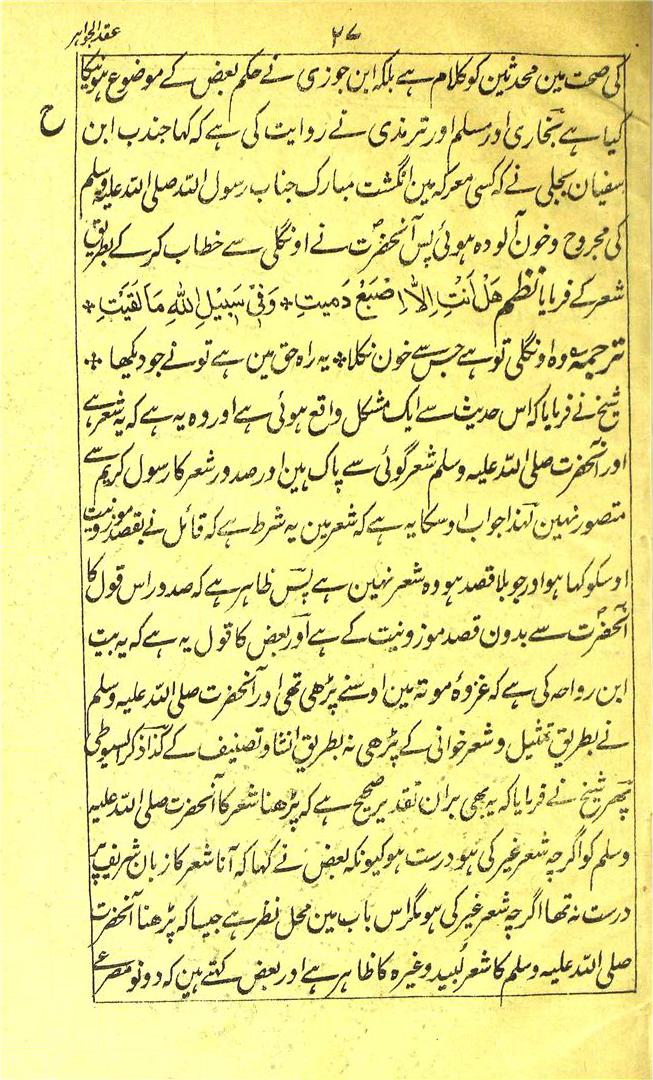 عقد الجواہر
۲۷
کی صحت مین محدثین کو کلام ہے بلکہ ابن جوزی نے حکم بعض کے موضوع ہونیکا
کیا ہے بخاری اور مسلم اور ترمذی نے روایت کی ہے کہ کہا جندب ابن
ح
سفیان بجلی نے کہ کسی معرکہ مین انگشت مبارک جناب رسول اللہ صلی اللہ علیہ وسلم
کی مجروح و خون آلودہ ہوئی پس آنحضرت نے اونگلی سے خطاب کر کے بطریق
شعر کے فرمایا نظم هَلْ اَنْتِ اِلَّا اِصْبَعٌ دَمِيتِ * وَفِيْ سَبِيْلِ اللّٰهِ مَا لَقِيْتِ *
ترجمہ وہ اونگلی تو ہے جس سے خون نکلا * یہ راہ حق مین ہے تونے جو دیکھا *
شیخ نے فرمایا کہ اس حدیث سے ایک مشکل واقع ہوئی ہے اور وہ یہ ہے کہ یہ شعر ہے
اور آنحضرت صلی اللہ علیہ وسلم شعر گوئی سے پاک ہین اور صدور شعر کا رسول کریم سے
متصور نہین لہٰذا جواب اوسکا یہ ہے کہ شعر مین یہ شرط ہے کہ قائل نے بقصد موزونیت
اوسکو کہا ہو اور جو بلا قصد ہو وہ شعر نہین ہے پس ظاہر ہے کہ صدور اس قول کا
آنحضرت سے بدون قصد موزونیت کے ہے اور بعض کا قول یہ ہے کہ یہ بیت
ابن رواحہ کی ہے کہ غزوۂ موتہ مین اوسنے پڑھی تھی اور آنحضرت صلی اللہ علیہ وسلم
نے بطریق تمثیل و شعر خوانی کے پڑھی نہ بطریق انشا و تصنیف کے کذا ذکر السیوطی
پھر شیخ نے فرمایا کہ یہ بھی بران تقدیر صحیح ہے کہ پڑھنا شعر کا آنحضرت صلی اللہ علیہ
وسلم کو اگرچہ شعر غیر کی ہو درست ہو کیونکہ بعض نے کہا کہ آنا شعر کا زبان شریف پر
درست نہ تھا اگرچہ شعر غیر کی ہو مگر اس باب مین محل نظر ہے جیسا کہ پڑھنا آنحضرت
صلی اللہ علیہ وسلم کا شعر لبید وغیرہ کا ظاہر ہے اور بعض کہتے ہین کہ دونو مصرعے